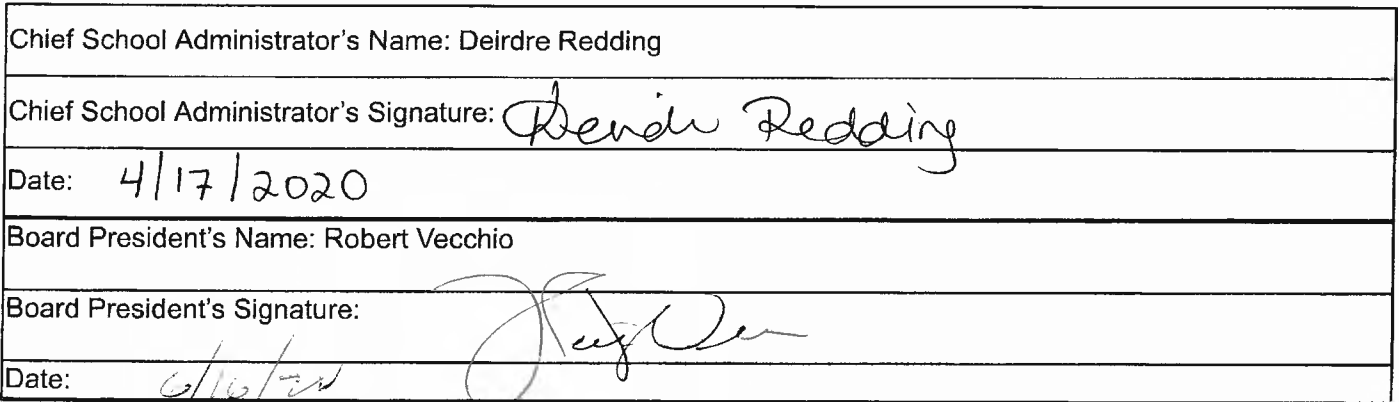 Chief School Administrator's Name: Deirdre Redding
Chief School Administrator's Signature: Redding
Date: 4/17/2020
Board President's Name: Robert Vecchio
Board President's Signature:
Date: